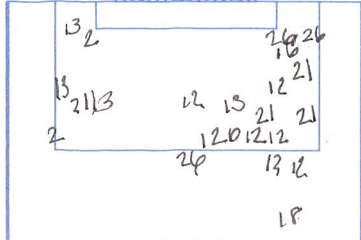 13
2
26
26
16
21
13
21
13
12
13
12
21
21
2
12
10
12
12
26
13
12
18